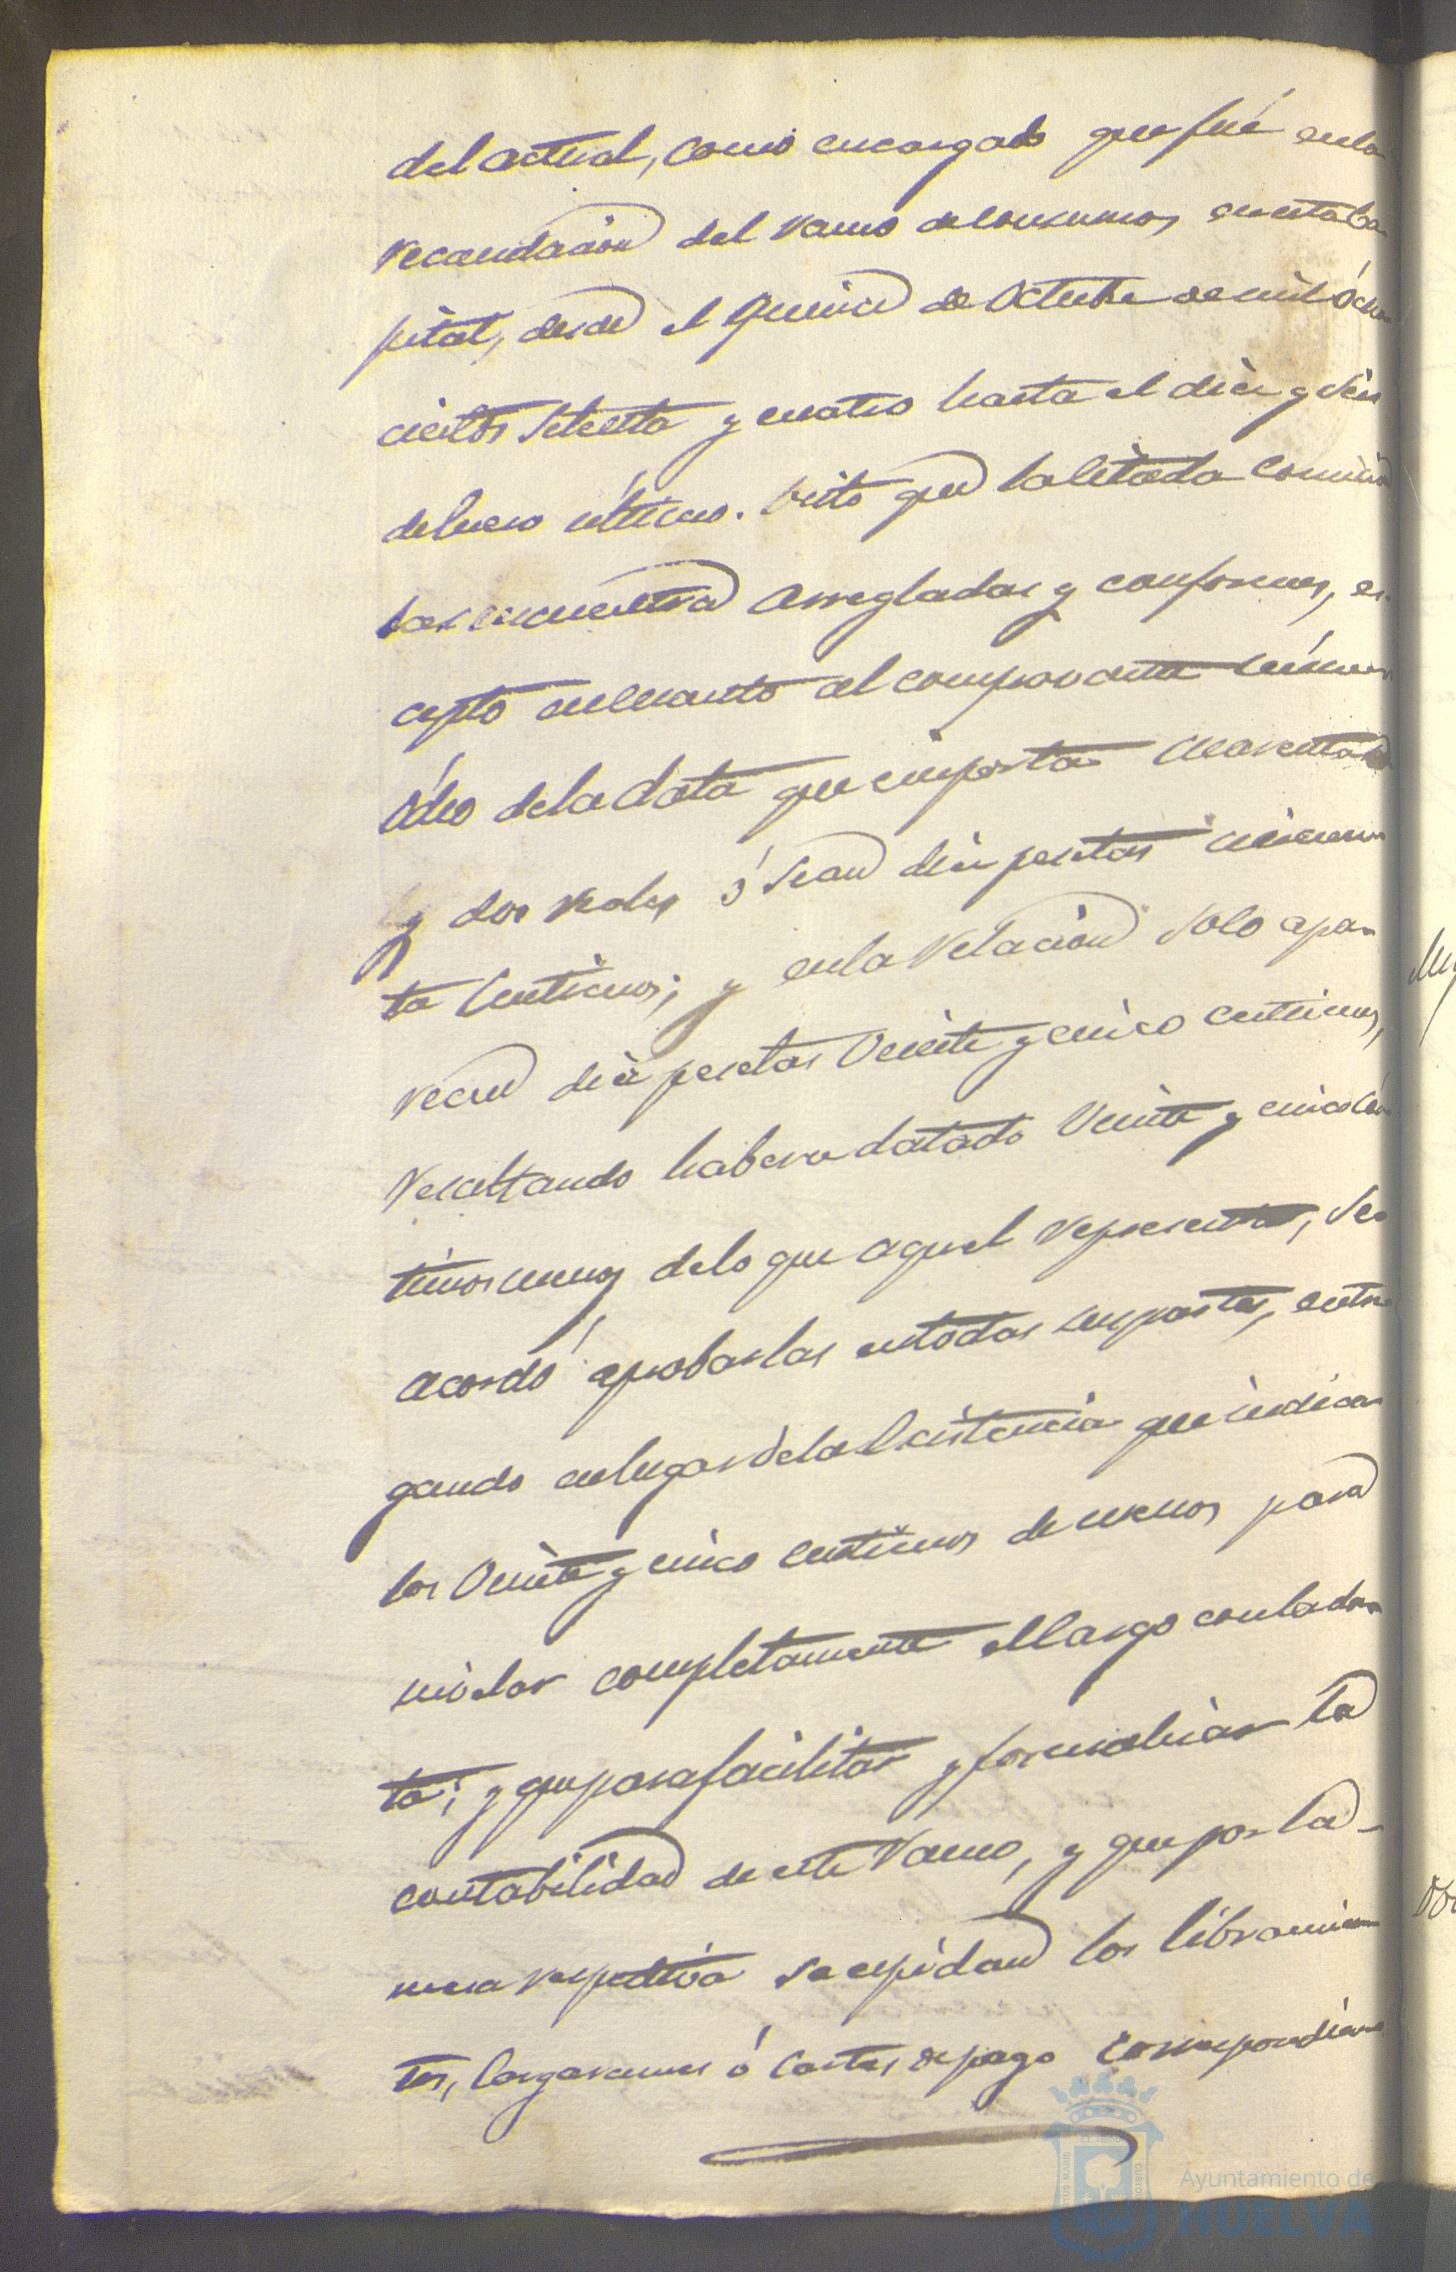 del actual, como encargado que fué en la
recaudacion del ramo de consumos en esta Ca
pital, desde el quince de Octubre de mil ócho
cientos setenta y cuatro hasta el diez y seis
de Enero último. Visto que la citada Comision
las encuentra arregladas y conformes, es
cepto en cuanto al comprovante número
ócho de la data que importa cuarenta
y dos reales ó sean diez pesetas cincuen
ta centimos; y en la relacion solo apa-
recen diez pesetas veinte y cinco centimos,
resultando haberse datado veinte y cinco cén
timos menos de lo que aquel representa, se
acordó aprobarlas en todas sus partes, entre
gando en lugar de la Existencia que indican
los veinte y cinco centimos de menos para
nivelar completamente el Cargo con la da
ta; y que para facilitar y formalizar la
contabilidad de este ramo, y que por la
mesa respectiva se espidan los libramien
tos, Cargaremes ó Cartas de pago correspondien
Ayuntamiento de
HUELVA